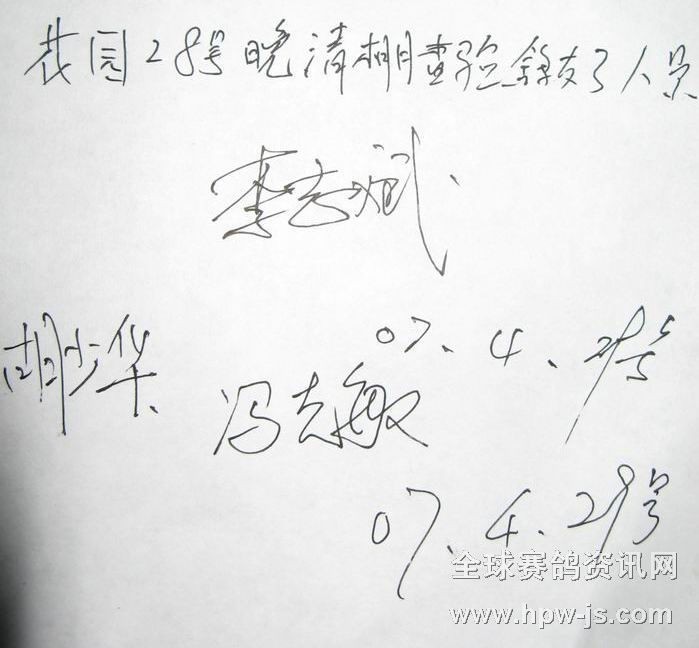 花园28号晚清棚查验鸽友3人员
李志斌
07.4.29号
胡少华
冯志敏
07.4.29号
全球赛鸽资讯网
www.hpw-js.com